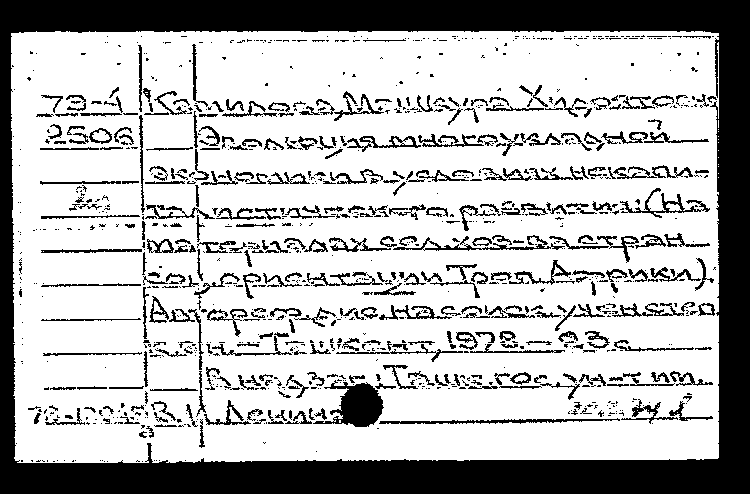 79-4 Камилова, Машкура Хидоятовна
2506 Эволюция многоукладной
экономики в условиях некапи-
талистического развития: (На
материалах сел. хоз-ва стран
соц. ориентации Троп. Африки).
Автореф. дис. на соиск. учен. степ.
к.э.н. - Ташкент, 1978. - 23 с.
В надзаг.: Ташк. гос. ун-т им.
В.И. Ленина